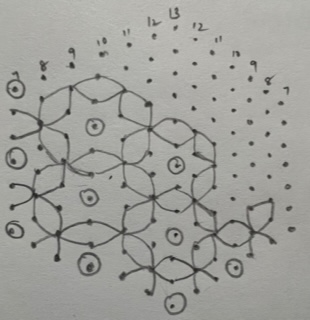 7 8 9 10 11 12 13 12 11 10 9 8 7